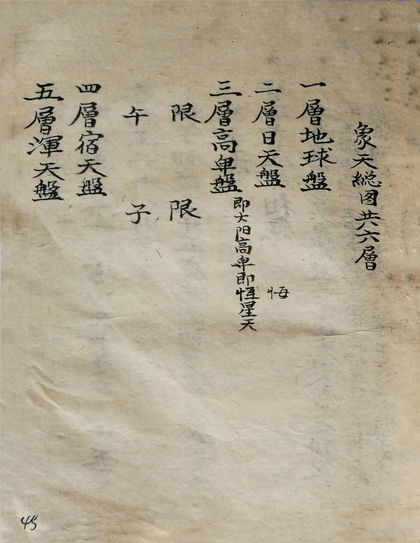 象天総图共六層
一層地球盤
二層日天盤
三層高卑盤
即太阳高卑即恆星天
限 限
午 子
四層宿天盤
五層渾天盤
45